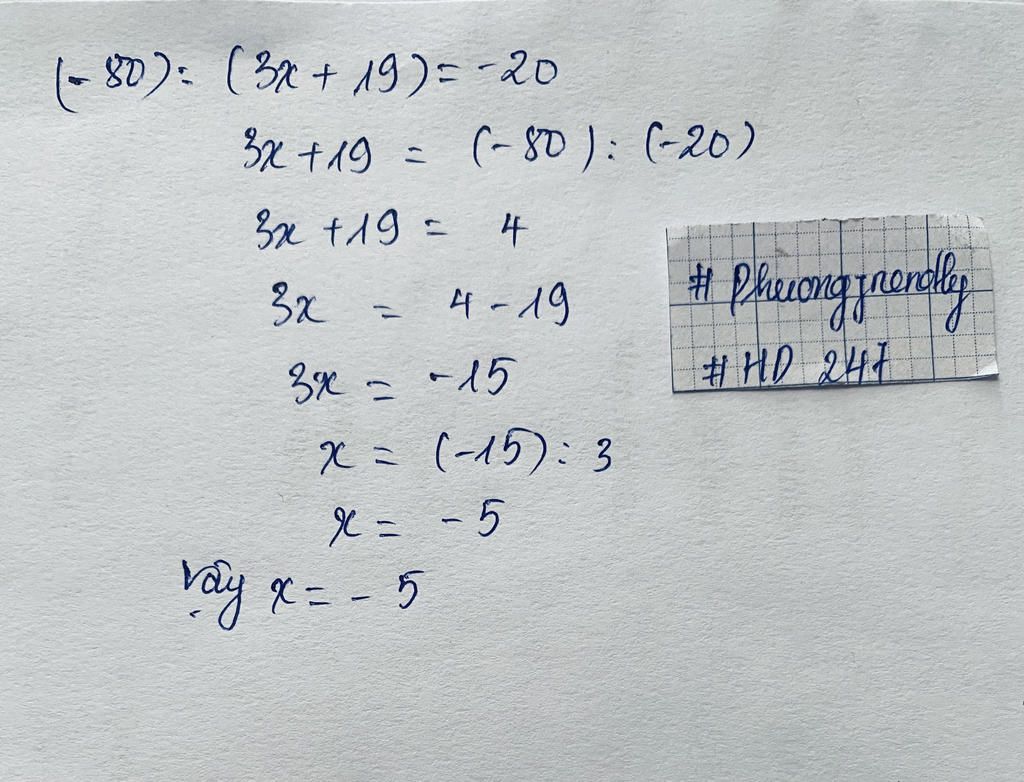 (-80): (3x + 19) = -20
3x + 19 = (-80) : (-20)
3x + 19 = 4
3x = 4 - 19
3x = -15
x = (-15) : 3
x = -5
Vậy x = -5
# Phuongfriendly
# HD 247